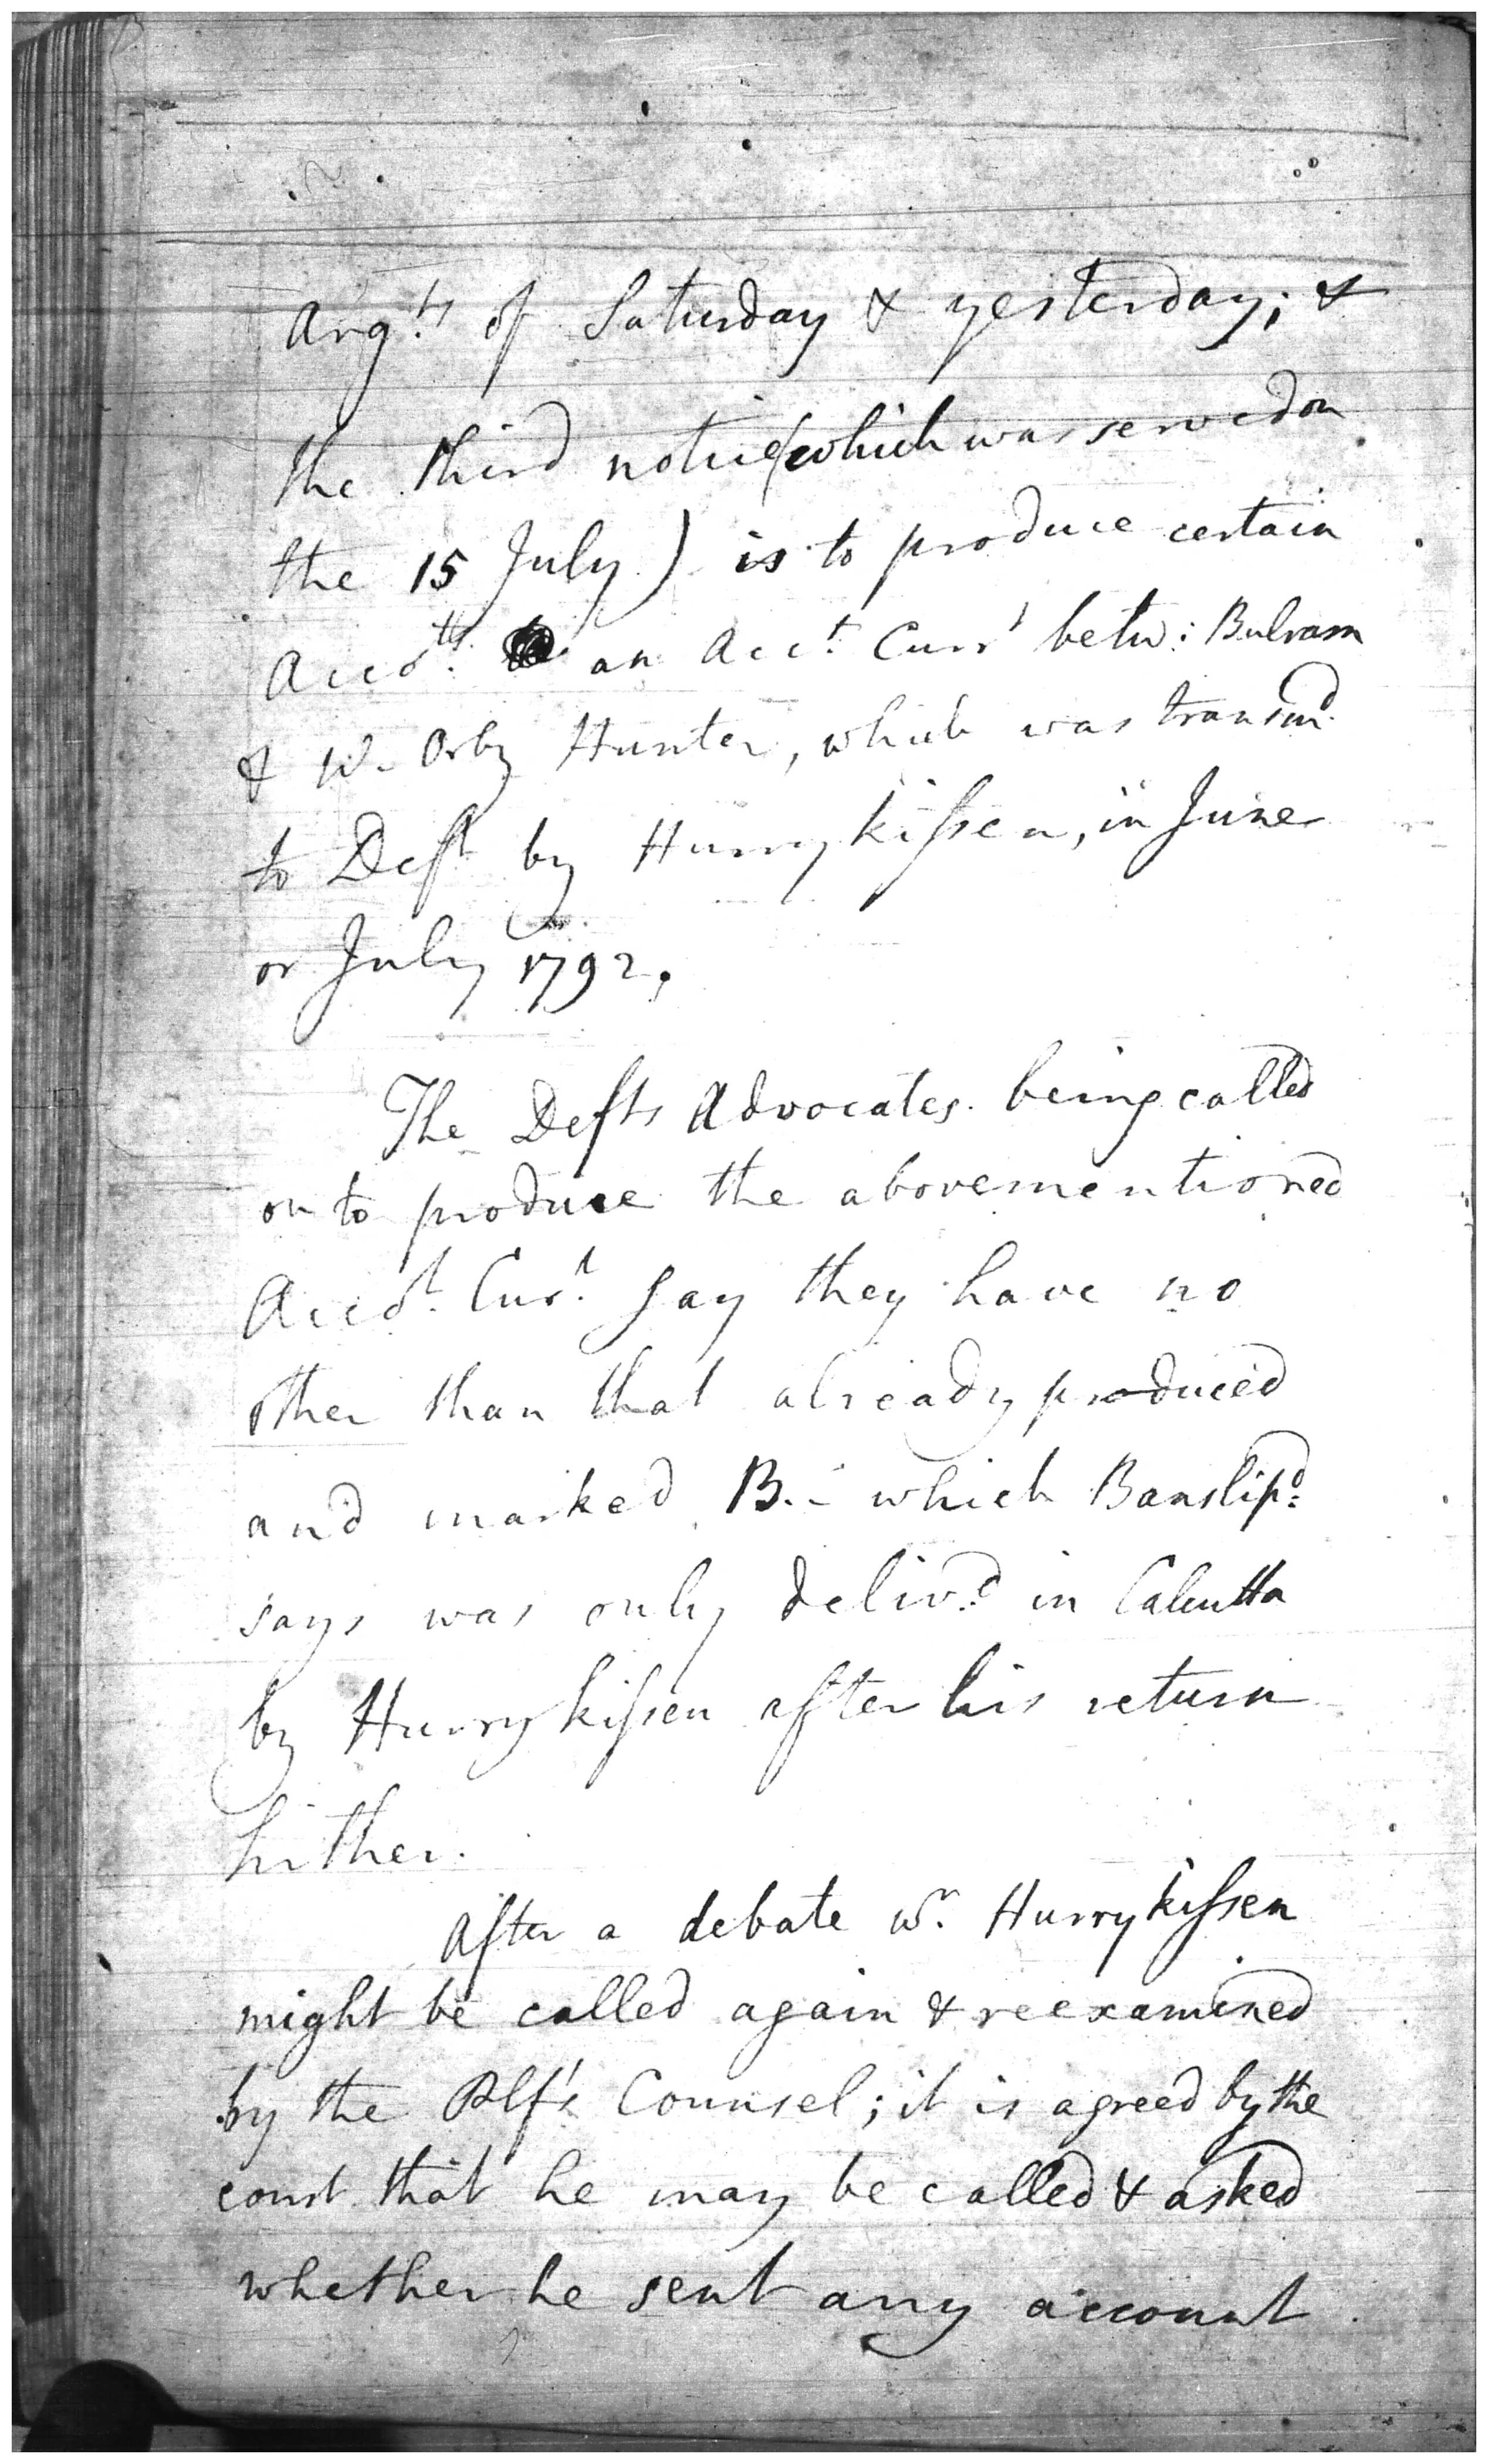 Arg.ts of Saturday & yesterday; &
the third notice (which was served on
the 15 July) is to produce certain
Acco.ts an Acc.t Curr.t betw: Bulram
& W. Orby Hunter, which was transm.d
to Deft by Hurrykissen, in June
or July 1792.
The Defts Advocates being called
on to produce the abovementioned
Acco.t Cur.t say they have no
other than that already produced
and marked B. - which Banslip.d
says was only deliv.d in Calcutta
by Hurrykissen after his return
hither.
After a debate w.r Hurrykissen
might be called again & reexamined
by the Plf's Counsel; it is agreed by the
court that he may be called & asked
whether he sent any account